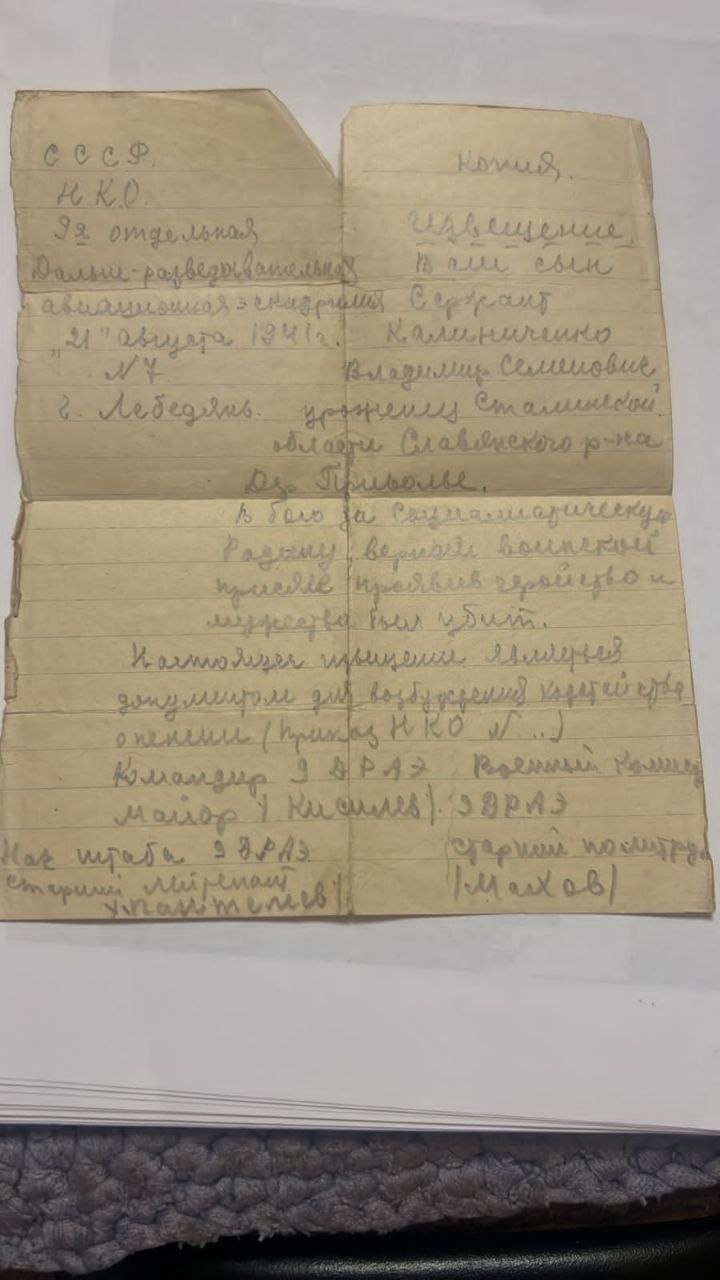 СССР.
Копия.
Н.К.О.
9я отдельная
Извещение.
Дальне-разведывательная
Ваш сын
авиационная эскадрилия Сержант
„21" августа 1941г. Калиниченко
N 7 Владимир Семенович
г. Лебедянь. уроженец Сталинской
области Славянского р-на
Дер Приволье.
В бою за Социалистическую
Родину, верный воинской
присяге проявив геройство и
мужество был убит.
Настоящее извещение является
документом для возбуждения ходатайства
о пенсии (приказ НКО N ..)
Командир 9 ДРАЭ Военный комисс
Майор /Кисилев/. 9 ДРАЭ
Нач штаба 9 ДРАЭ. старший политрук
старший лейтенант /Махов/
/Пантелеев/